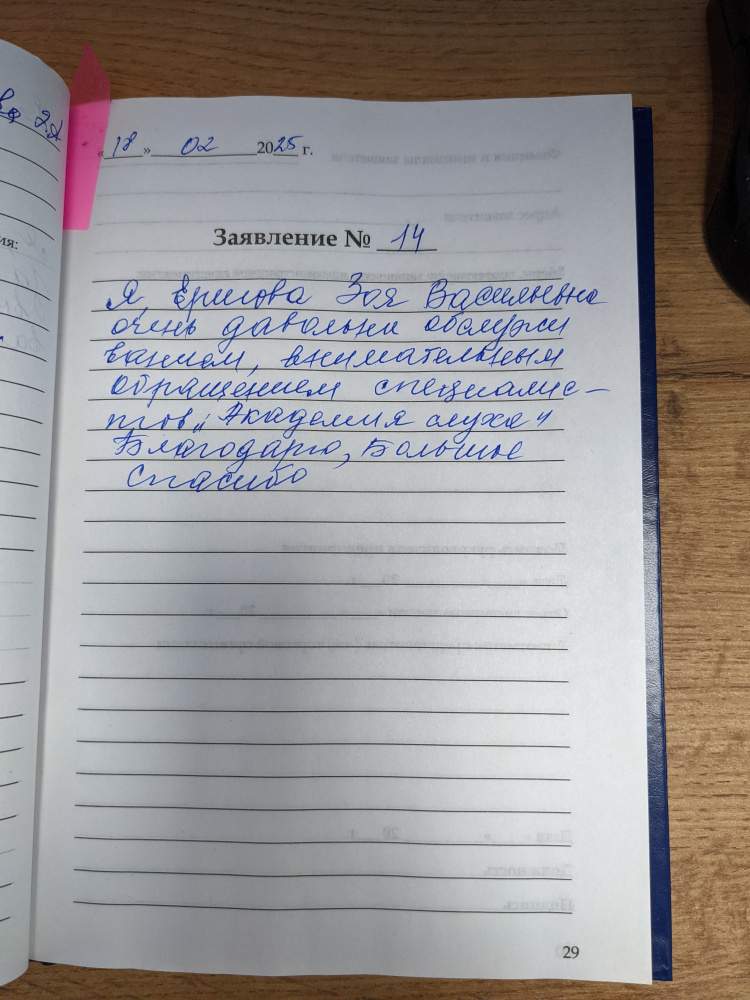 «18» 02 2025 г.
Заявление № 14
Я, Ершова Зоя Васильевна
очень давольна обслужи
ванием, внимательным
обращением специалис-
тов „Академия слуха"
Благодарю, Большое
спасибо
ия:
29